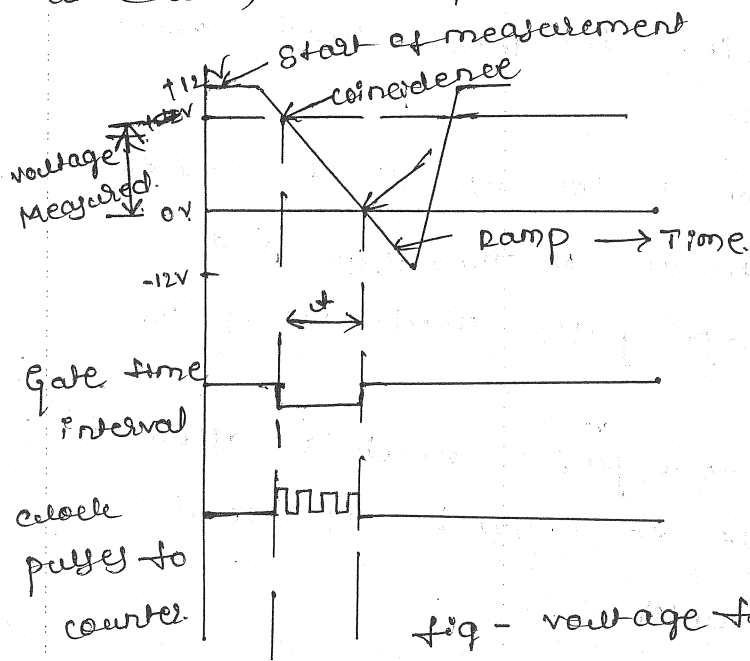 Start of measurement
+12V
coincidence
voltage
Measured.
0V
Ramp → Time
-12V
t
Gate time
interval
clock
pulses to
counter
fig - voltage to